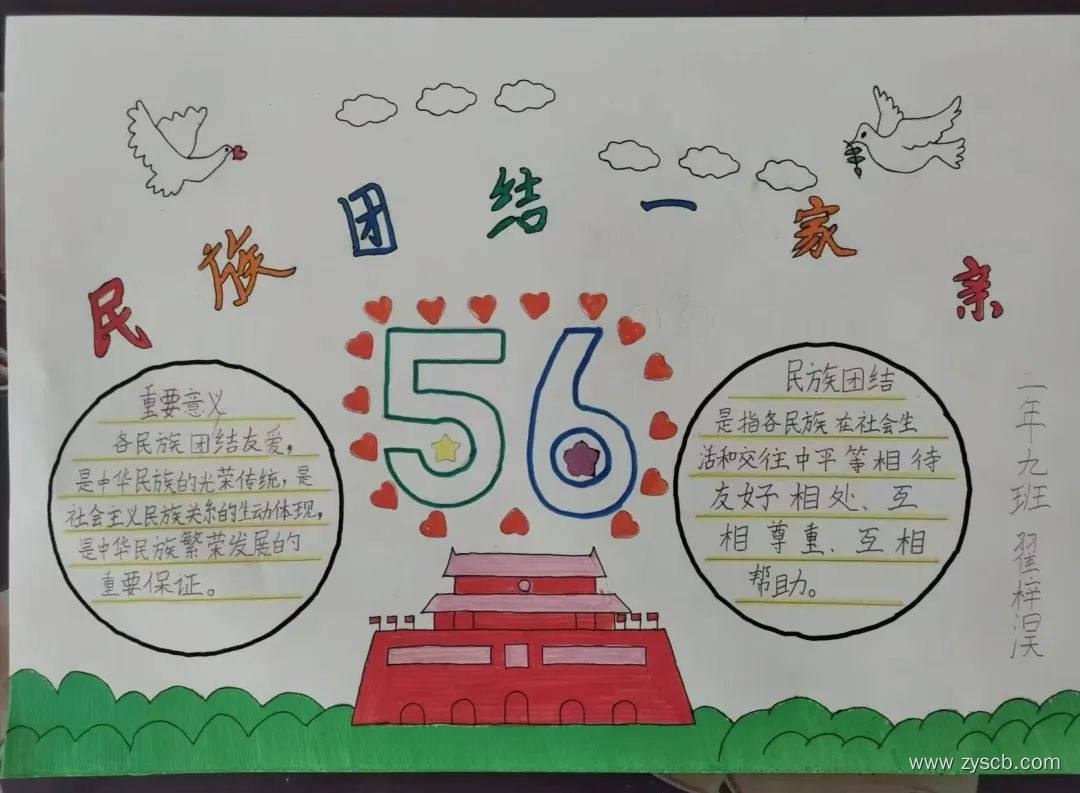 民族团结一家亲
56
重要意义
各民族团结友爱，
是中华民族的光荣传统，是
社会主义民族关系的生动体现，
是中华民族繁荣发展的
重要保证。
民族团结
是指各民族在社会生
活和交往中平等相待
友好相处、互
相尊重、互相
帮助。
一年九班 翟梓淏
www.zyscb.com